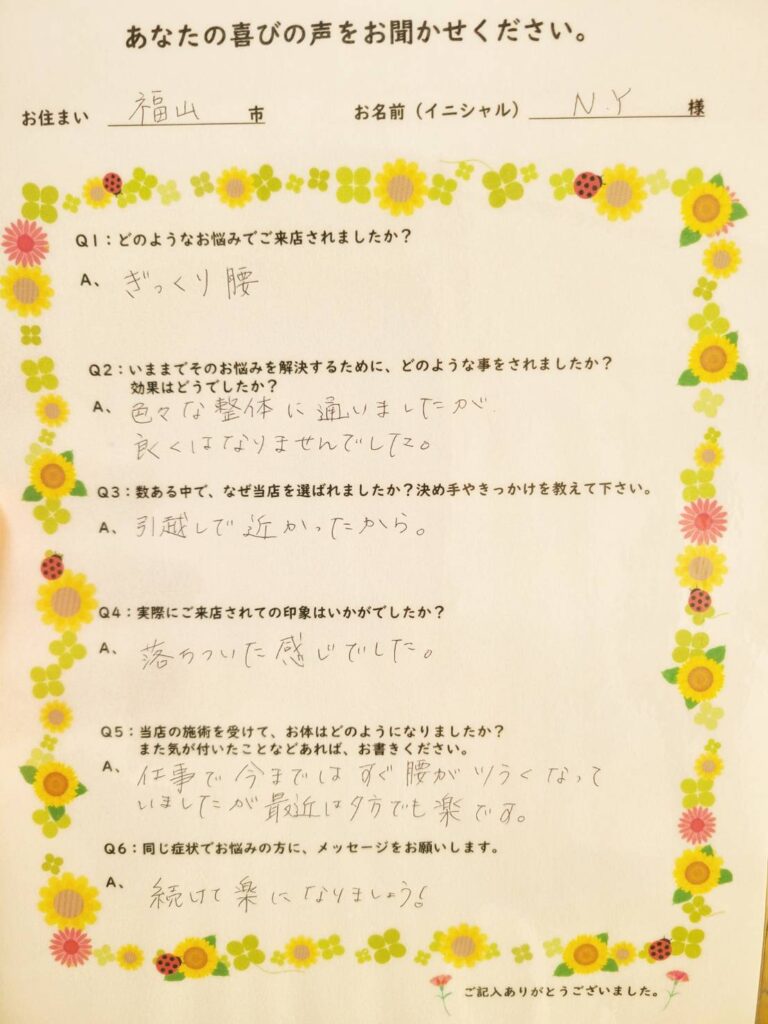 あなたの喜びの声をお聞かせください。
お住まい 福山 市 お名前（イニシャル） N.Y 様
Q1：どのようなお悩みでご来店されましたか？
A、ぎっくり腰
Q2：いままでそのお悩みを解決するために、どのような事をされましたか？
効果はどうでしたか？
A、色々な整体に通いましたが
良くはなりませんでした。
Q3：数ある中で、なぜ当店を選ばれましたか？決め手やきっかけを教えて下さい。
A、引越しで近かったから。
Q4：実際にご来店されての印象はいかがでしたか？
A、落ちついた感じでした。
Q5：当店の施術を受けて、お体はどのようになりましたか？
また気が付いたことなどあれば、お書きください。
A、仕事で今まではすぐ腰がツうくなって
いましたが最近は夕方でも楽です。
Q6：同じ症状でお悩みの方に、メッセージをお願いします。
A、続けて楽になりましょう!
ご記入ありがとうございました。